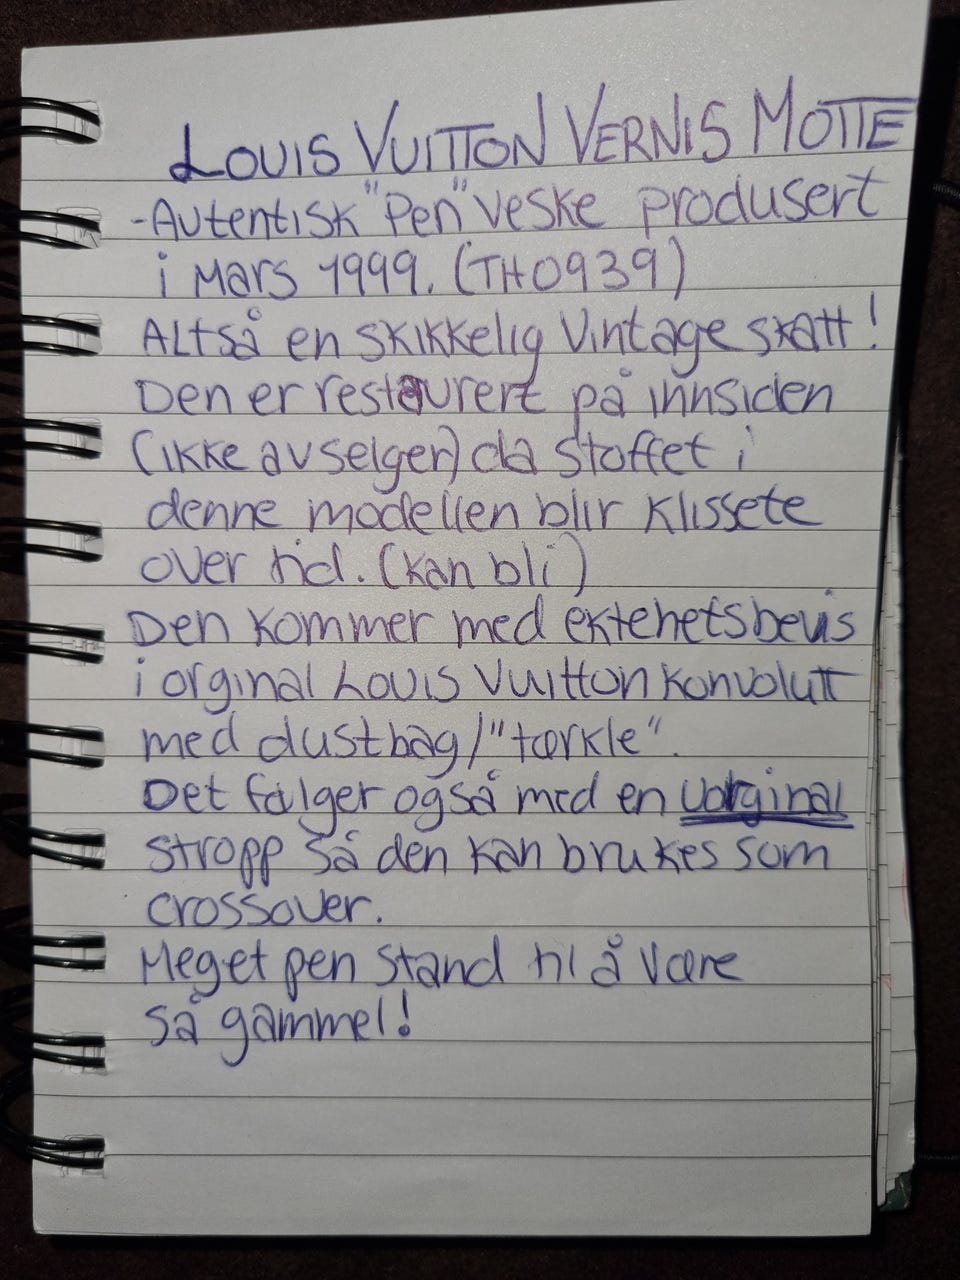 LOUIS VUITTON VERNIS MOTTE
-AUTENTISK "Pen" VESKE produsert
i MARS 1999. (TH0939)
ALTSÅ en SKIKKELIG Vintage skatt!
Den er restaurert på innsiden
(IKKE av selger) da stoffet i
denne modellen blir Klissete
over tid. (Kan bli)
Den Kommer med ektehetsbevis
i orginal LOUIS Vuitton Konvolutt
med dustbag/"tørkle".
Det følger også med en uorginal
stropp så den kan brukes som
crossover.
Meget pen stand til å være
så gammel!